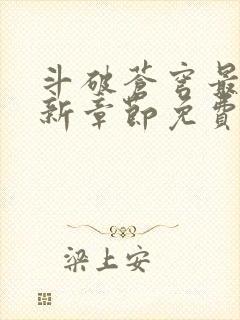 斗破苍穹最
新章节免费
梁上安